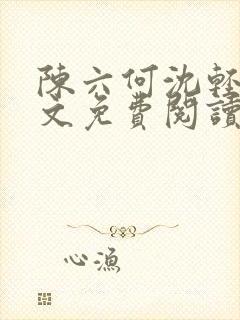 陳六何沈輕
文免費閱讀
心漁